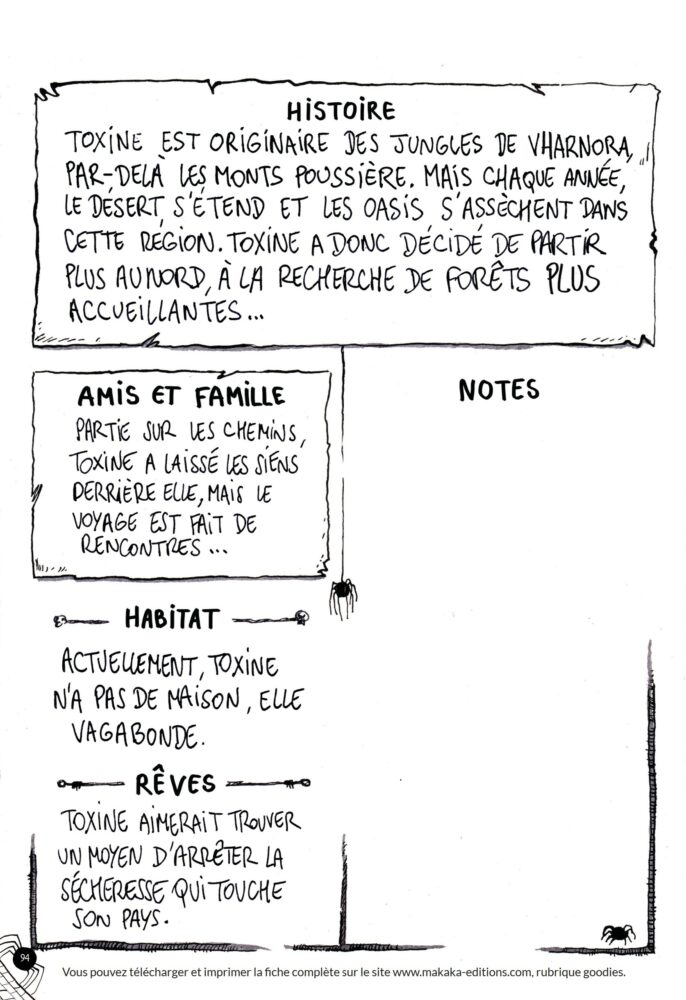 HISTOIRE
TOXINE EST ORIGINAIRE DES JUNGLES DE VHARNORA,
PAR-DELÀ LES MONTS POUSSIÈRE. MAIS CHAQUE ANNÉE,
LE DÉSERT S'ÉTEND ET LES OASIS S'ASSÈCHENT DANS
CETTE RÉGION. TOXINE A DONC DÉCIDÉ DE PARTIR
PLUS AU NORD, À LA RECHERCHE DE FORÊTS PLUS
ACCUEILLANTES...
AMIS ET FAMILLE
PARTIE SUR LES CHEMINS,
TOXINE A LAISSÉ LES SIENS
DERRIÈRE ELLE, MAIS LE
VOYAGE EST FAIT DE
RENCONTRES...
HABITAT
ACTUELLEMENT, TOXINE
N'A PAS DE MAISON, ELLE
VAGABONDE.
RÊVES
TOXINE AIMERAIT TROUVER
UN MOYEN D'ARRÊTER LA
SÉCHERESSE QUI TOUCHE
SON PAYS.
NOTES
94
Vous pouvez télécharger et imprimer la fiche complète sur le site www.makaka-editions.com, rubrique goodies.